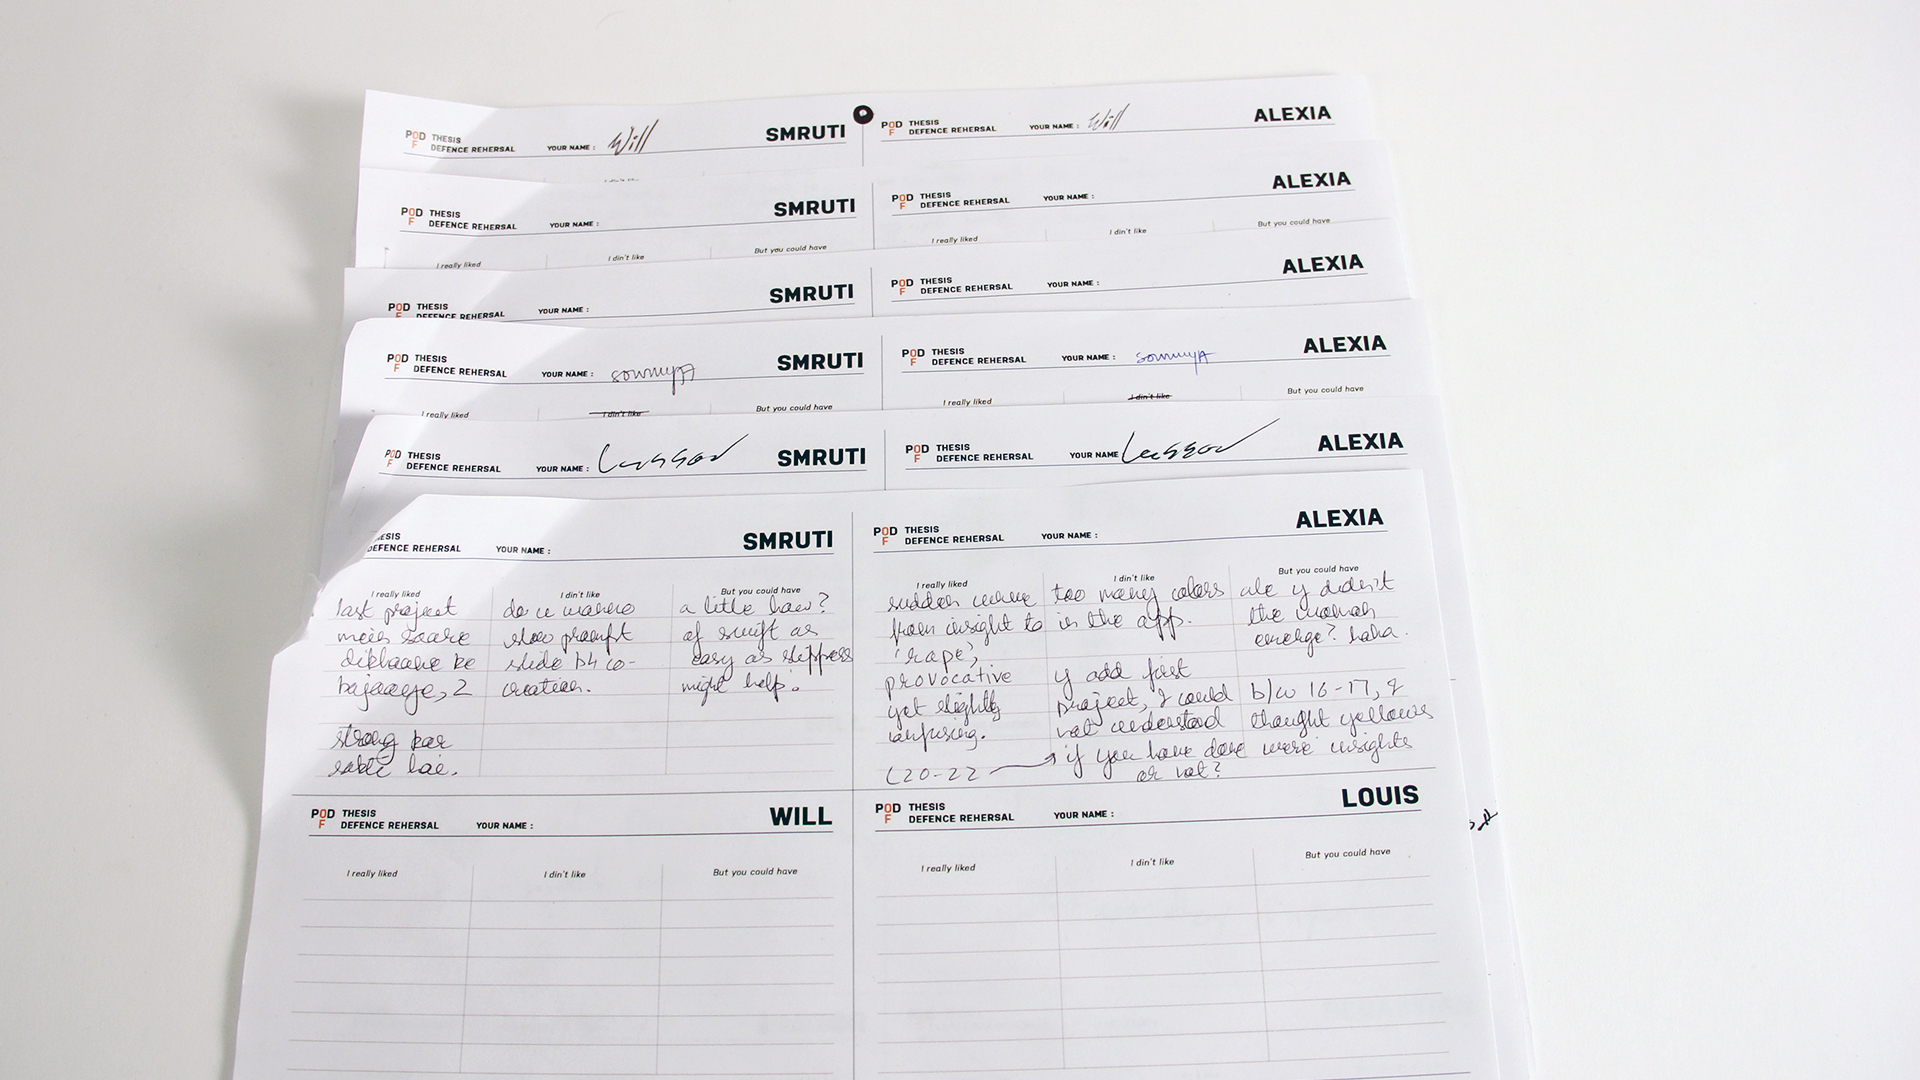 POD F THESIS DEFENCE REHERSAL YOUR NAME : Will SMRUTI
POD THESIS DEFENCE REHERSAL YOUR NAME : Will ALEXIA
POD F THESIS DEFENCE REHERSAL YOUR NAME : SMRUTI
I really liked I din't like But you could have
POD F THESIS DEFENCE REHERSAL YOUR NAME : ALEXIA
I really liked I din't like But you could have
POD F THESIS DEFENCE REHERSAL YOUR NAME : SMRUTI
POD F THESIS DEFENCE REHERSAL YOUR NAME : ALEXIA
POD F THESIS DEFENCE REHERSAL YOUR NAME : SowmyA SMRUTI
I really liked I din't like But you could have
POD F THESIS DEFENCE REHERSAL YOUR NAME : SowmyA ALEXIA
I really liked I din't like But you could have
POD F THESIS DEFENCE REHERSAL YOUR NAME : SMRUTI
POD F THESIS DEFENCE REHERSAL YOUR NAME ALEXIA
ESIS
DEFENCE REHERSAL YOUR NAME : SMRUTI
I really liked
last project
mein saare
dikhaane ke
bajaaye, 2
strong kar
sakte hai.
I din't like
do u wanna
show prompt
slide b4 co-
creation.
But you could have
a little how?
of swift as
easy as slippers
might help.
POD F THESIS DEFENCE REHERSAL YOUR NAME : ALEXIA
I really liked
sudden
from insight to
'rape',
provocative
yet slightly
confusing.
(20-22
I din't like
too many colors
in the app.
y add first
project, I could
not understand
if you have done
or not?
But you could have
y didn't
the woman
emerge? haha.
b/w 16-17, I
thought yellows
were insights
POD F THESIS DEFENCE REHERSAL YOUR NAME : WILL
I really liked I din't like But you could have
POD F THESIS DEFENCE REHERSAL YOUR NAME : LOUIS
I really liked I din't like But you could have